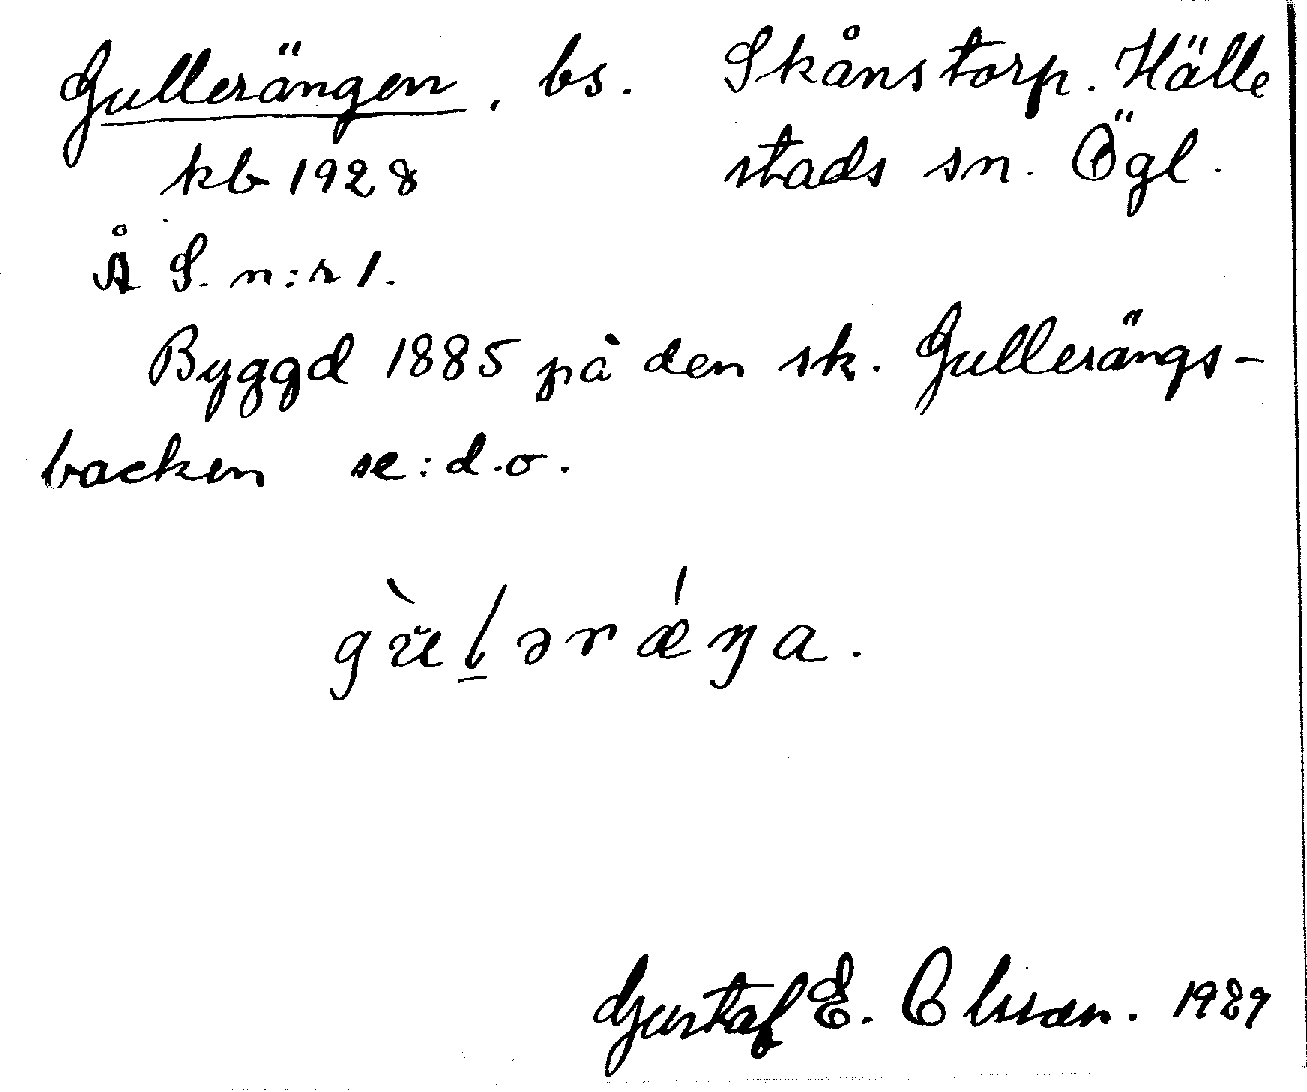 Gullerängen. bs. Skånstorp. Hälle
kb 1928 stads sn. Ögl.
Å S. n:r 1.
Byggd 1885 på den sk. Gullerängs-
backen se: d.o.
gùlərǽŋa.
Gustaf E. Olsson. 1929